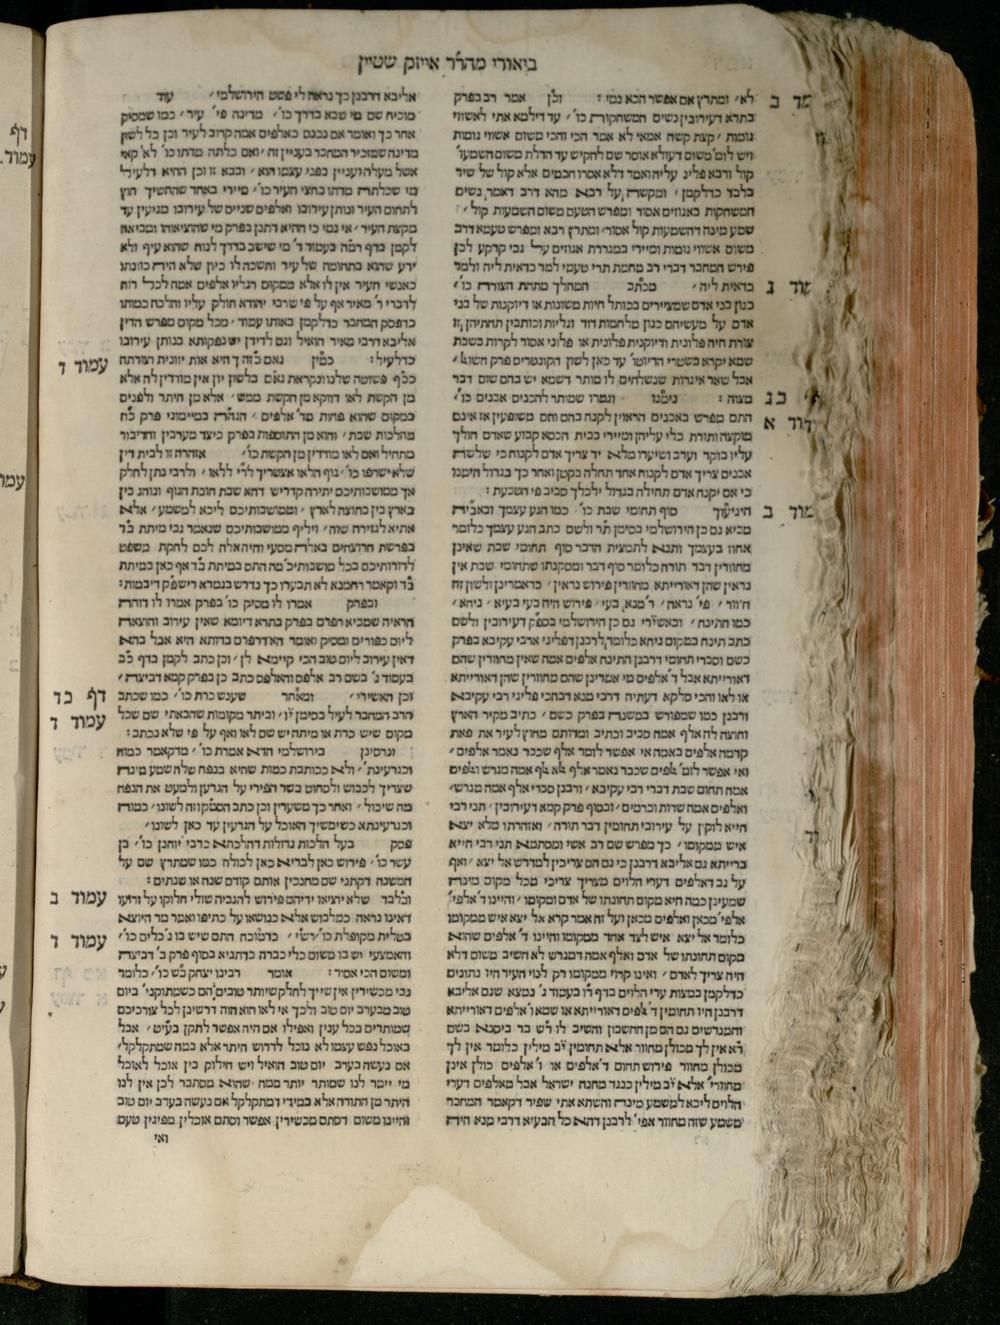 ביאורי מהר״ר אייזק שטיין
מד ב
לא׳ ומתרץ אם אפשר הכא נמי : וכן אמר רב בפרק
בתרא דעירובין נשים המשחקות כו׳ עד דילמא אתי לאשוויי
גומות ׳ קצת קשה אמאי לא אמר הכי והכי משום אשווי גומות
ויש לומ׳ משום דעולא אוסר שם להקיש עד הדלת משום השמעו׳
קול ורבא פליג עליה ואמר דלא אסרו חכמים אלא קול של שיר
בלבד כדלקמן ׳ ומקשה על רבא מהא דרב דאמר נשים
המשחקות באגוזים אסור ומפרש הטעם משום השמעות קול ׳
שמע מינה דהשמעות קול אסור׳ ומתרץ רבא ומפרש טעמא דרב
משום אשווי גומות ומיירי במגררת אגוזים על גבי קרקע לכן
פירש המחבר דברי רב מחמת תרי טעמי למר כדאית ליה ולמר
מוד ג
כדאית ליה ׳ מכתב המהלך מתחת הצורה כו׳
כגון בני אדם שמציירים בכותל חיות משונות או דיוקנות של בני
אדם על מעשיהם כגון מלחמות דוד וגלית וכותבין תחתיהן זו
צורת חיה פלונית ודיוקנית פלונית או פלוני אסור לקרות בשבת
שמא יקרא בשטרי הדיוטו׳ עד כאן לשון הקונטרים פרק חשוג׳
אבל שאר איגרות שנשלחים לו מותר דשמא יש בהם שום דבר
כג
מצוה : נימנו וגמרו שמותר להכנים אבנים כו׳
מוד א
התם מפרש באבנים הראוין לקנח בהם וחם משופעין אז אינם
מוקצה ותורת כלי עליהן ומיירי בבית הכסא קבוע שאדם הולך
עליו בוקר וערב ושיעורו מלא יד צריך אדם לקנוח כי שלשה
אבנים צריך אדם לקנוח אחד תחלה בקטן ואחר כך בגדול הימנו
כי אם יקנח אדם תחילה בגדול ילכלך סביב פי הטבעת :
מוד ב
היגיעוך סוף תחומי שבת כו׳ כמו הגע עצמך ובאביה
מביא גם כן הירושלמי בסימן תר ולשם כתב הגע עצמך כלומר
אחוז בעצמך ותנא לתמצית הדבר סוף תחומי שבת שאינן
מחוורין דבר תורה כלומר סוף דבר ומסקנתו שתחומי שבת אין
נראין שהן דאורייתא מחוורין פירוש נראין ׳ כדאמרינן ולשון זה
חיוור ׳ פי׳ נראה ׳ ר׳ מנא בעי ׳ פירוש היה בעי בעיא ׳ ניחא ׳
כמו התינח ׳ ובאשירי גם כן הירושלמי בפסק דעירובין ולשם
כתב תינח במקום ניחא כלומר לרבנן דפליגי ארבי עקיבא בפרק
כשם וסברי תחומי דרבנן התינח אלפים אמה שאין מחוורין שהם
דאורייתא אבל ד׳ אלפים מי אמרינן שהם מחוורין שהן דאורייתא
או לאו והכי סלקא דעתיה דרבי מנא דבהכי פליגי רבי עקיבא
ורבנן כמו שמפורש במשנה בפרק כשם ׳ כתיב מקיר הארץ
וחוצה לה אלף אמה סביב וכתיב ומדותם מחוץ לעיר את פאת
קדמה אלפים באמה אי אפשר לומר אלף שכבר נאמר אלפים ׳
ואי אפשר לומ׳ אלפים שכבר נאמר אלף הא אלף אמה מגרש ואלפים
אמה תחום שבת דברי רבי עקיבא ׳ ורבנן סברי אלף אמה מגרש׳
ואלפים אמה שדות וכרמים ׳ ובסוף פרק קמא דעירובין ׳ תני רבי
חייא לוקין על עירובי תחומין דבר תורה ׳ ואזהרתו מלא יצא
איש ממקומו ׳ כך מפרש שם רב אשי ומסתמא תני רבי חייא
ברייתא גם אליבא דרבנן כי גם הם צריכין למדרש אל יצא ׳ ואף
על גב דאלפים דערי הלוים מצריך צריכי מכל מקום מינה
שמעינן כמה היא מקום תחונתו של אדם ומקומו ׳ והיינו ד׳ אלפי׳
אלפי׳ מכאן ואלפים מכאן ועל זה אמר קרא אל יצא איש ממקומו
כלומר אל יצא איש לצד אחד ממקומו והיינו ד׳ אלפים שהוא
מקום תחונתו של אדם ואלף אמה דמגרש לא חשיב משום דלא
היה צריך לאדם ׳ ואינו קרוי ממקומו רק לנוי העיר היו נתונים
כדלקמן במצות ערי הלוים בדף רו בעמוד ג׳ נמצא שגם אליבא
דרבנן היו תחומין ד׳ אלפים דאורייתא או שמא׳ אלפים דאורייתא
והמגרשים גם הם מן החשבון והשיב לו ר׳ש בר ביסנא בשם
ר׳ אין לך מכולן מחוור אלא תחומין י״ב מילין כלומר אין לך
מכולן מחוור פירוש תחום ד׳ אלפים או ו׳ אלפים כולן אינן
מחוורי׳ אלא י״ב מילין כנגד מחנה ישראל אבל מאלפים דערי
הלוים ליכא למשמע מינה והשתא אתי שפיר דקאמר המחבר
משמע שזה מחוור אפי׳ לרבנן דהא כל הבעיא דרבי מנא היה
אליבא דרבנן כך נראה לי פשט הירושלמי ׳ עוד
מוכיח שם מי שבא בדרך כו׳ מדינה פי׳ עיר ׳ כמו שמסיק
אחר כך ואומר אם נכנם באלפים אמה קרוב לעיר וכן כל לשון
מדינה שמזכיר המחבר בעניין זה ׳ ואם כלתה מדתו כו׳ לא קאי
אשל מעלה ועניין בפני עצמו הוא ׳ ובבא זו וכן ההיא דלעיל
מי שכלתה מדתו בחצי העיר כו׳ מיירי באחד שהחשיך חוץ
לתחום העיר ונותן עירובו ואלפים שניים של עירובו מגיעין עד
מקצת העיר ׳ אי נמי כי ההיא דתנן בפרק מי שהוציאוהו ומביאה
לקמן בדף רמה בעמוד ד׳ מי שישב בדרך לנוח שהוא עיף ולא
ידע שהוא בתחומה של עיר וחשכה לו כיון שלא היה כוונתו
כאנשי העיר אין לו אלא ממקום רגליו אלפים אמה לכל רוח
לדברי ר׳ מאיר אף על פי שרבי יהודא חולק עליו והלכה כמותו
כדפסק המחבר כדלקמן באותו עמוד ׳ מכל מקום מפרש הדין
אליבא דרבי מאיר הואיל וגם לדידן יש נפקותא בנותן עירובו
עמוד ד
כדלעיל : כמין גאם כזה ך היא אות יוונית וצורתה
ככף פשוטה שלנו ונקראת גאם בלשון יון אין מודדין לה אלא
מן הקשת לאו דווקא מן הקשת ממש ׳ אלא מן היתר ולפנים
במקום שהוא פחות מד׳ אלפים ׳ הגהה במיימוני פרק כ״ח
מהלכות שבת ׳ והוא מן התוספות בפרק כיצד מערבין והדיבור
מתחיל ואם לאו מודדין מן הקשת כו׳ אזהרה זו לבית דין
שלא ישרפו כו׳ גוף הלאו אצטריך לר׳ ללאו ׳ ולרבי נתן לחלק
אך ממושבותיכם יתירה קדריש דהא שבת חובת הגוף ונוהג בין
בארץ בין בחוצה לארץ ׳ וממושבותיכם ליכא למשמע ׳ אלא
אתיא לגזירה שוה ׳ ויליף ממושבותיכם שנאמר גבי מיתת ב״ד
בפרשת הרוצחים באלה מסעי והיה אלה לכם לחקת משפט
לדורותיכם בכל מושבותיכ׳ מה התם במיתת ב״ד אף כאן במיתת
ב״ד וקאמר רחמנא לא תבערו כך נדרש בגמרא ריש פ״ק דיבמות :
ובפרק אמרו לו מסיק כו׳ בפרק אמרו לו דוהה
הראיה שמביא רפרם בפרק בתרא דיומא שאין עירוב והוצאה
ליום כפורים ומסיק ואומר הא דרפרם בדותא היא אבל בהא
דאין עירוב ליום טוב הכי קיימא לן ׳ וכן כתב לקמן בדף פב
בעמוד ג׳ בשם רב אלפס והאלפס כתב כן בפרק קמא דביצה ׳
דף כד
וכן האשירי ׳ ומאחר שענש כרת כו׳ כמו שכתב
עמוד ד
הרב המחבר לעיל בסימן יו ׳ וביתר מקומות שהבאתי שם שכל
מקום שיש כרת או מיתה יש שם לאו ואף על פי שלא נכתב :
וגרסינן בירושלמי הדא אמרת כו׳ מדקאמר כמות
וכגרעינת ׳ ולא ככותבת כמות שהיא בנפח שלה שמע מינה
שצריך לכבוש ולסחוט בשר הפירי על הגרען ולמעט את הנפח
מה שיכול ׳ ואחר כך משערין וכן כתב הסמק וזה לשונו ׳ כמות
וכגרעינתא כשימשיך האוכל על הגרעין עד כאן לשונו ׳
פסק בעל הלכות גדולות דהלכתא כרבי יוחנן כו׳ בן
עשר כו׳ פירוש כאן לבריא כאן לחולה כמו שמתרץ שם על
המשנה דקתני שם מחנכין אותם קודם שנה או שנתים :
עמוד ב
ובלבד שלא יוציאו ידיהם פירוש להגביה שולי חלוקו על זרועו
דאינו נראה כמלבוש אלא כנושאו על כתיפו ואמר מר היוצא
עמוד ד
בטלית מקופלת כו׳ רש״י ׳ כדמוכח התם שיש בו ג׳ כלים כו׳
והאמצעי יש בו משום כלי כברה כדתניא בסוף פרק ב׳ דביצה
ומשום הכי אסור : אומר רבינו יצחק ב״ש כו׳ כלומר
גבי מכשירין אין שייך לחלק שיותר טובים הם כשמתוקני׳ ביום
טוב מבערב יום טוב ולכך אי לאו הוא הוה דרשינן לכל צורכיכם
שמותרים בכל ענין ואפילו אם היה אפשר לתקן בעי׳ט ׳ אבל
באוכל נפש עצמו לא נוכל לדרוש היתר אלא במה שמתקלקל׳
אם נעשה בערב יום טוב הואיל ויש חילוק בין אוכל לאוכל
מי יימר לנו שמותר יותר ממה שהוא מסתבר לכן אין לנו
היתר מן התורה אלא במידי דמתקלקל אם נעשה בערב יום טוב
והיינו משום דסתם מכשירין אפשר וסתם אוכלין מפיגין טעם
ואי